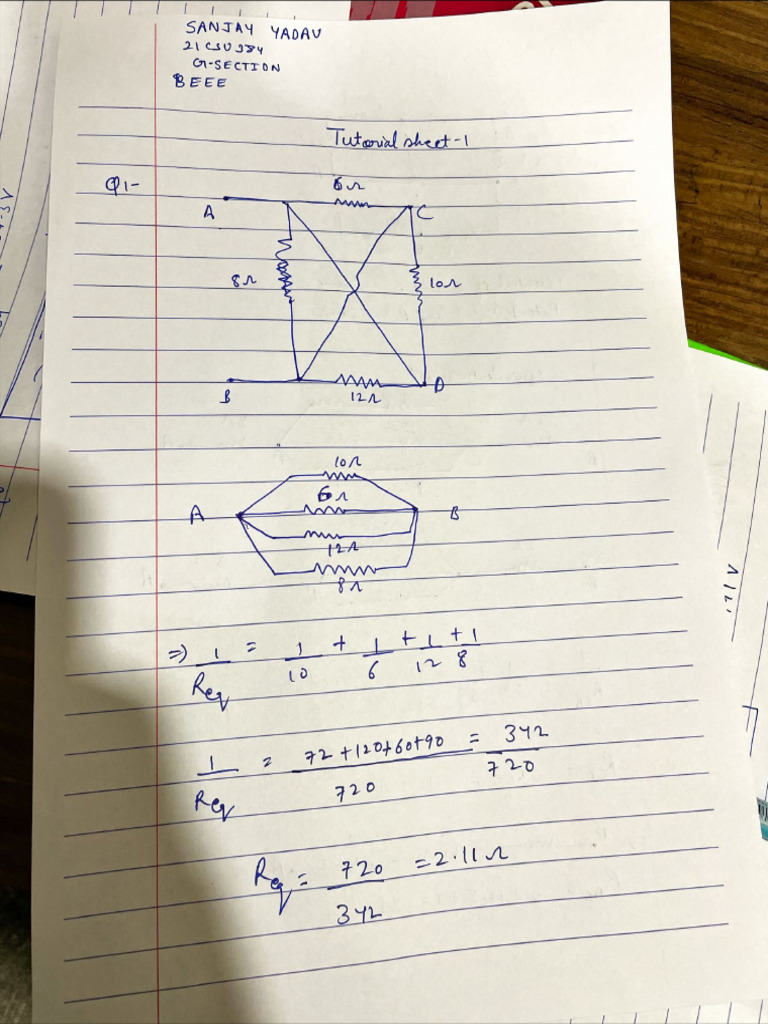 SANJAY YADAV
21CSU384
G-SECTION
BEEE
Tutorial sheet-1
Q1-
6Ω
A
C
8Ω
10Ω
B
D
12Ω
10Ω
6Ω
A
B
12Ω
8Ω
⇒ 1/Req = 1/10 + 1/6 + 1/12 + 1/8
1/Req = 72+120+60+90/720 = 342/720
Req = 720/342 = 2.11Ω